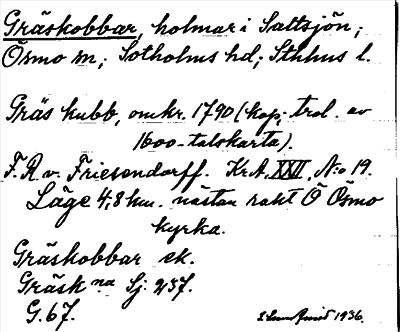 Gräskobbar, holmar i Saltsjön;
Ösmo sn; Sotholms hd; Sthlms l.
Gräs kubb, omkr. 1790 (kop; trol. av
1600-talskarta).
F. R. v. Friesendorff. KrA. XXII, N:o 19.
Läge 4,8 km. nästan rakt Ö Ösmo
kyrka.
Gräskobbar ek.
Gräsk na Sj. 237.
G. 67.
1936.